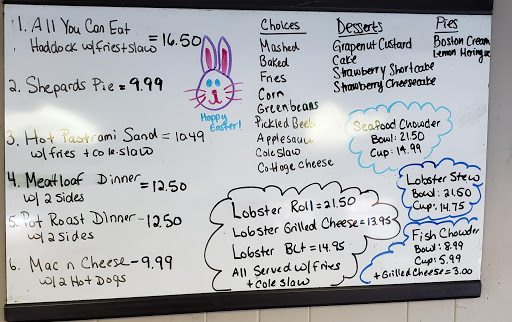 1. All You Can Eat
Haddock w/fries+slaw = 16.50
2. Shepards Pie = 9.99
3. Hot Pastrami Sand = 10.49
w/ fries + coleslaw
4. Meatloaf Dinner = 12.50
w/ 2 sides
5. Pot Roast Dinner - 12.50
w/ 2 sides
6. Mac n Cheese - 9.99
w/2 Hot Dogs
Happy
Easter!
Choices
Mashed
Baked
Fries
Corn
Greenbeans
Pickled Beets
Applesauce
Coleslaw
Cottage cheese
Desserts
Grapenut Custard
Cake
Strawberry Shortcake
Strawberry Cheesecake
Pies
Boston Cream
Lemon Meringue
Seafood Chowder
Bowl: 21.50
Cup: 14.99
Lobster Stew
Bowl: 21.50
Cup: 14.75
Fish Chowder
Bowl: 8.99
Cup: 5.99
+Grilled Cheese = 3.00
Lobster Roll = 21.50
Lobster Grilled Cheese = 13.95
Lobster BLT = 14.95
All Served w/fries
+ cole slaw